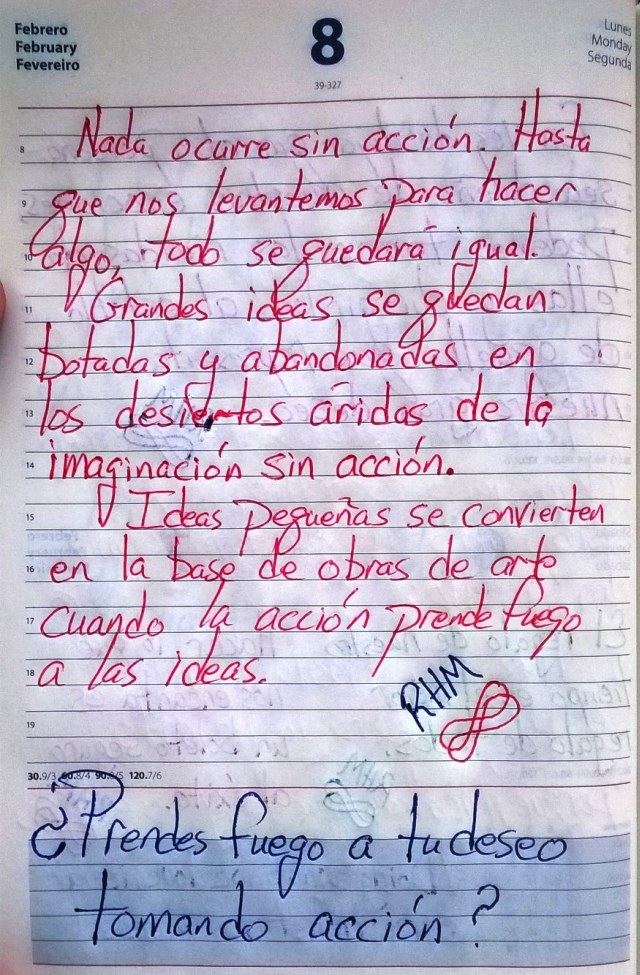 Febrero
February
Fevereiro
8
39-327
Lunes
Monday
Segunda
8 Nada ocurre sin acción. Hasta
9 que nos levantemos para hacer
10 algo, todo se quedará igual.
11 Grandes ideas se quedan
12 botadas y abandonadas en
13 los desiertos áridas de la
14 imaginación sin acción.
15 Ideas pequeñas se convierten
16 en la base de obras de arte
17 cuando la acción prende fuego
18 a las ideas.
RHM
19
30.9/3 60.8/4 90.8/5 120.7/6
¿Prendes fuego a tu deseo
tomando acción?